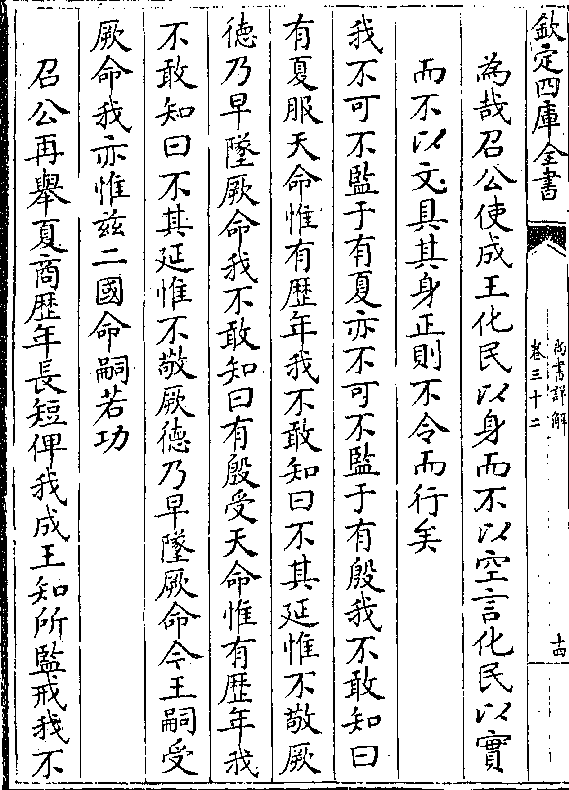 欽定四庫全書
尚書詳解
卷三十二
十四
為哉召公使成王化民以身而不以空言化民以實
而不以文具其身正則不令而行矣
我不可不監于有夏亦不可不監于有殷我不敢知曰
有夏服天命惟有歴年我不敢知曰不其延惟不敬厥
德乃早墜厥命我不敢知曰有殷受天命惟有歴年我
不敢知曰不其延惟不敬厥德乃早墜厥命今王嗣受
厥命我亦惟兹二國命嗣若功
召公再舉夏商歴年長短俾我成王知所監戒我不